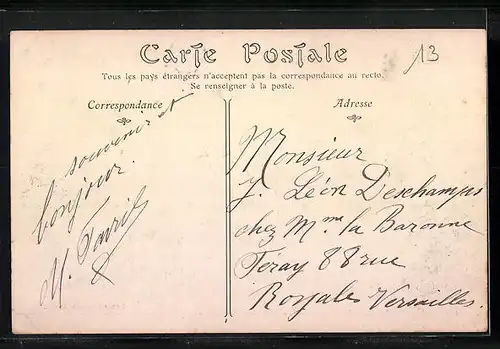 Carte Postale
13
Tous les pays étrangers n'acceptent pas la correspondance au recto.
Se renseigner à la poste.
Correspondance
souvenir et
bonjour.
Adresse
Monsieur
J. Léon Deschamps
chez Mme la Baronne
Feray 88 rue
Royales Versailles.